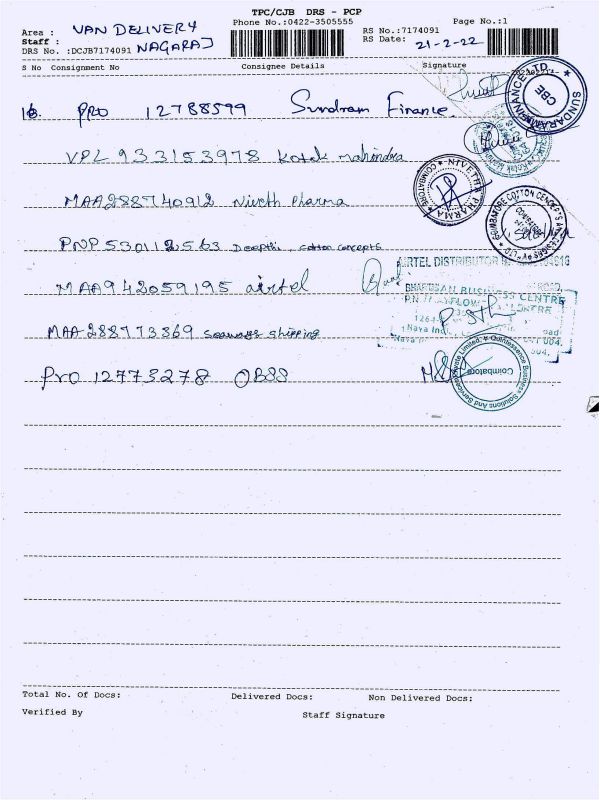 TPC/CJB DRS - PCP
Phone No.:0422-3505555
Page No.:1
Area : VAN DELIVERY
Staff : NAGARAJ
DRS No. :DCJB7174091
RS No.:7174091
RS Date: 21-2-22
S No Consignment No Consignee Details Signature
PRO 12788599 Sundram Finance.
VPL 933153978 Kotak mahindra
MAA288740912 Niveth Pharma
PNP530112563 Deepthi cotton concepts
MAA942059195 airtel
MAA288773369 seaways shipping
PRO 12773278 OBSS
SUNDARAM FINANCE LTD.
CBE
NIVETH PHARMA
COIMBATORE
AIRTEL DISTRIBUTOR
BUSINESS CENTRE
Quintessence Business Solutions And Services Private Limited
Coimbatore
Total No. Of Docs: Delivered Docs: Non Delivered Docs:
Verified By Staff Signature